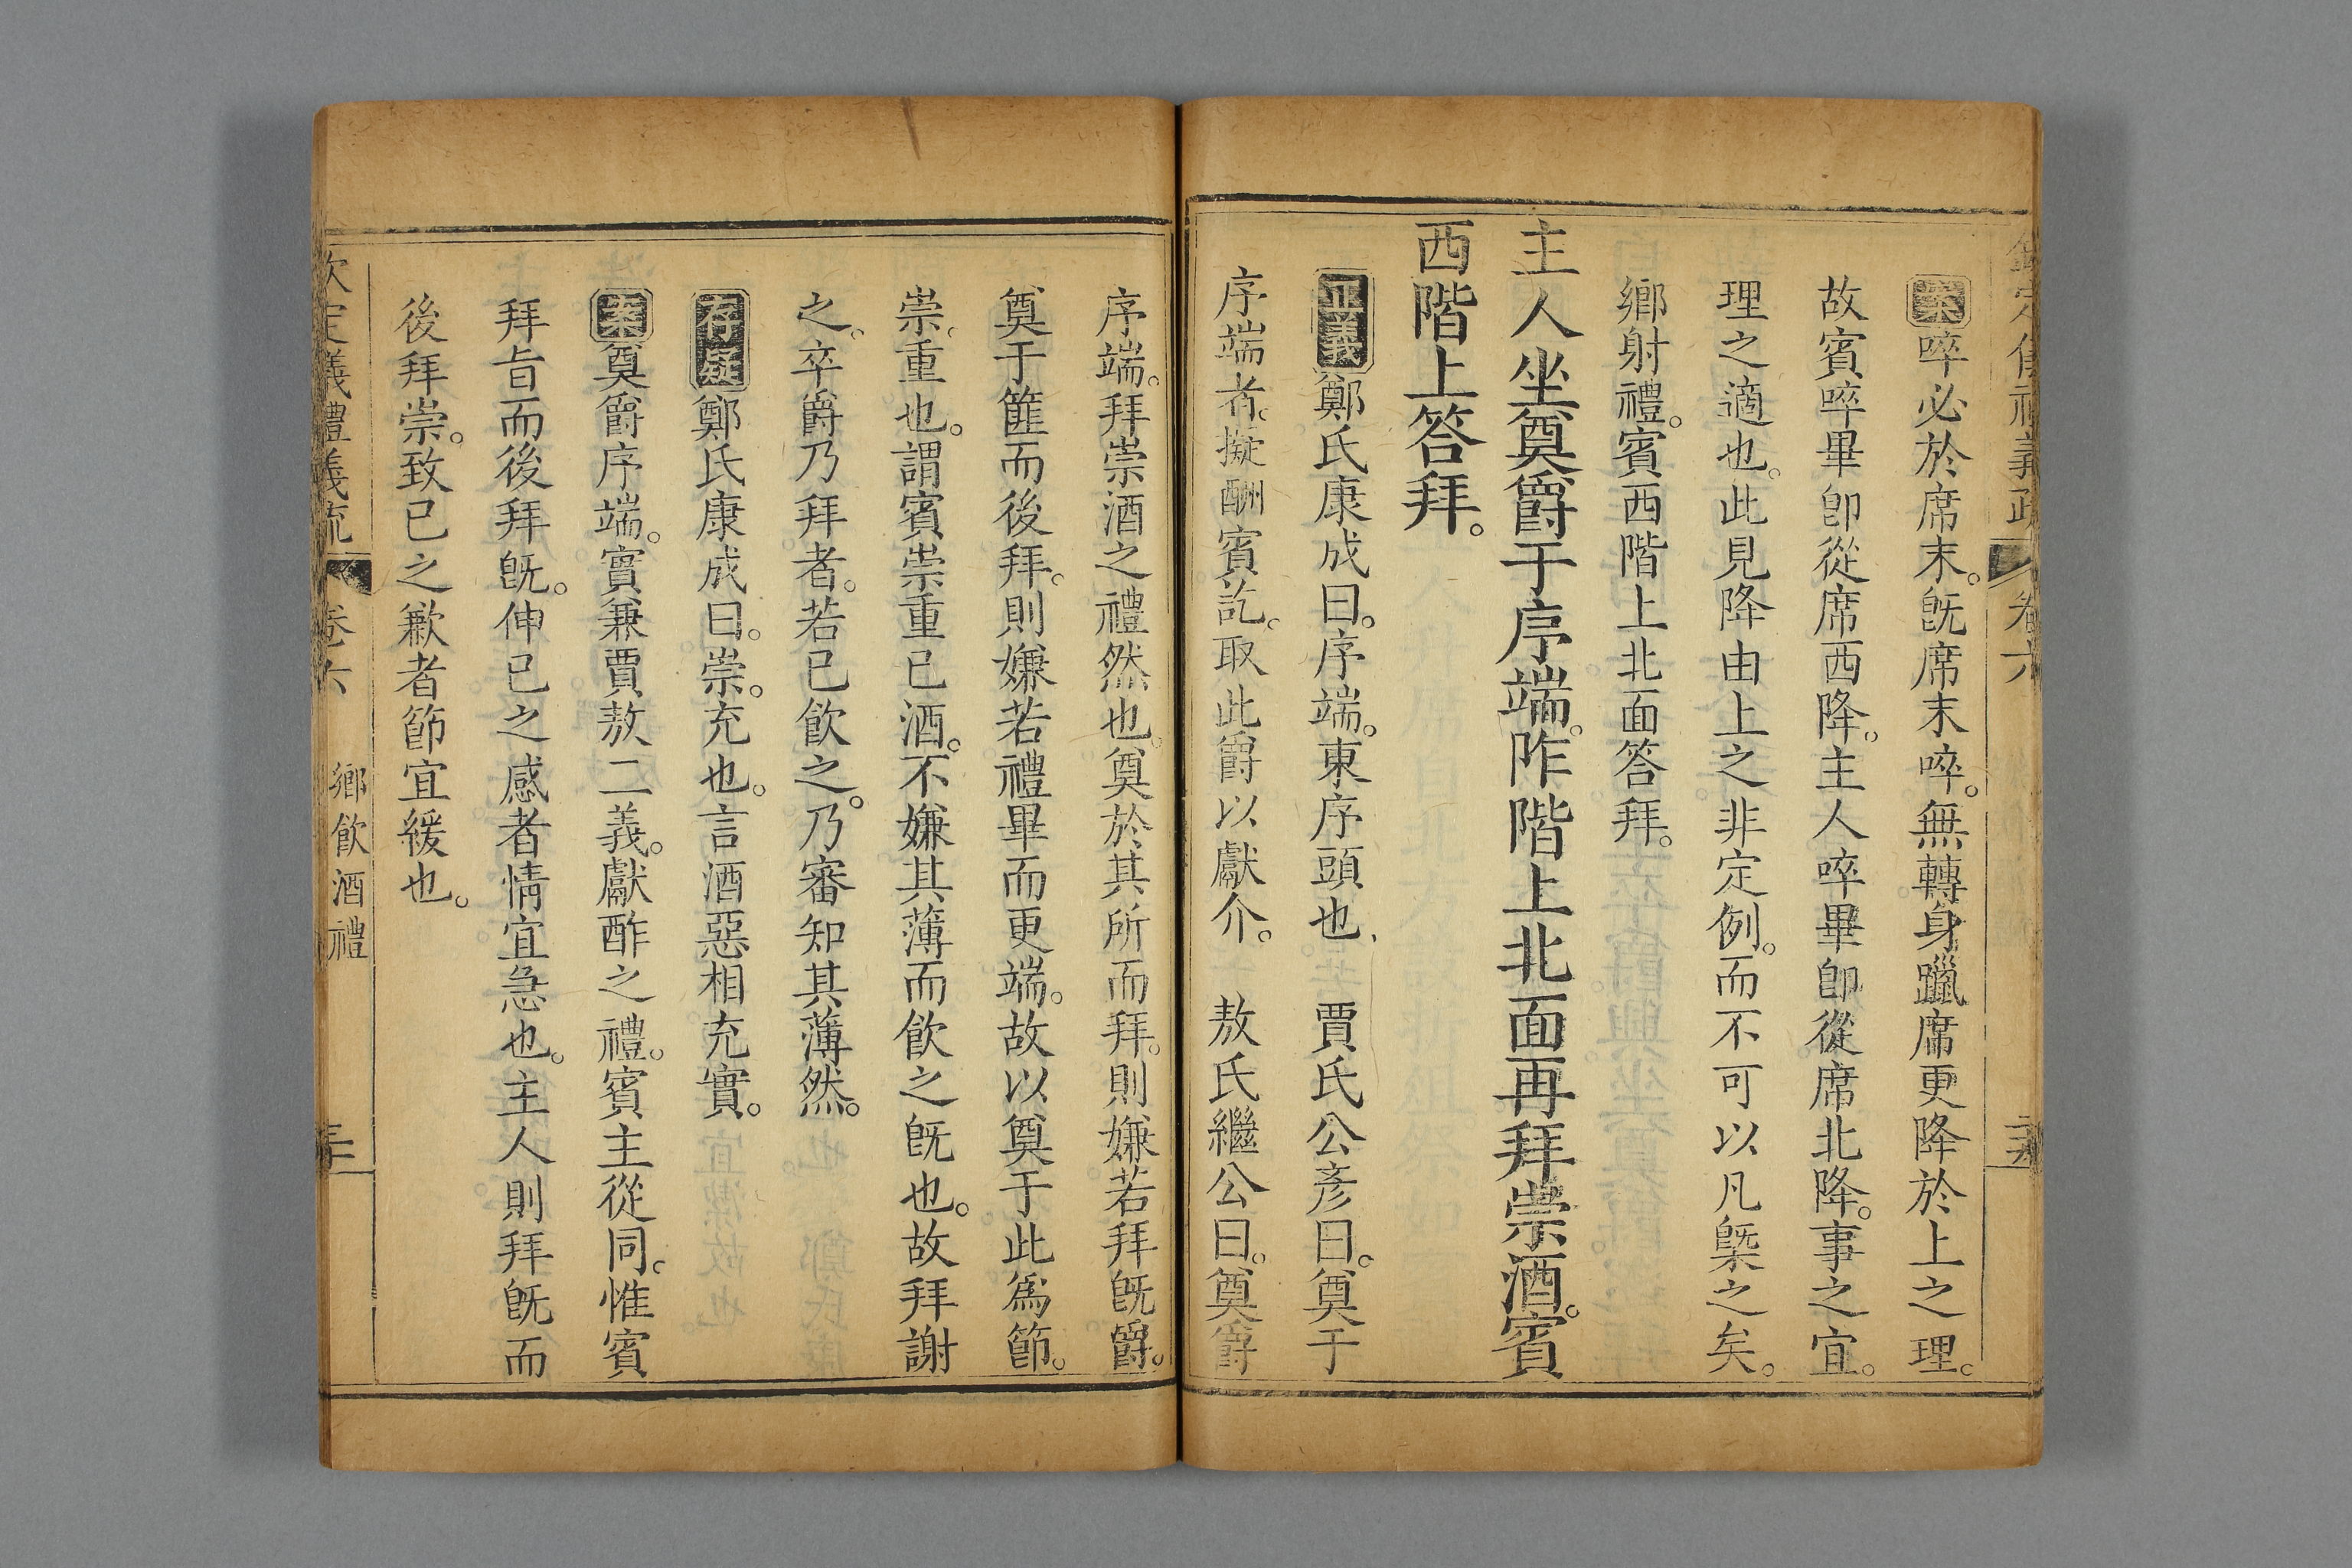 欽定儀禮義疏 卷六
案啐必於席末。旣席末啐。無轉身躐席更降於上之理。
故賓啐畢卽從席西降。主人啐畢卽從席北降。事之宜。
理之適也。此見降由上之非定例。而不可以凡槩之矣。
鄉射禮。賓西階上北面答拜。
主人坐奠爵于序端。阼階上北面再拜崇酒。賓
西階上答拜。
正義鄭氏康成曰。序端。東序頭也、 賈氏公彥曰。奠于
序端者。擬酬賓訖。取此爵以獻介。 敖氏繼公曰。奠爵
序端。拜崇酒之禮然也。奠於其所而拜。則嫌若拜旣爵。
奠于篚而後拜。則嫌若禮畢而更端。故以奠于此爲節。
崇。重也。謂賓崇重已酒。不嫌其薄而飮之旣也。故拜謝
之。卒爵乃拜者。若已飮之。乃審知其薄然。
存疑鄭氏康成曰。崇。充也。言酒惡相充實。
案奠爵序端。實兼賈敖二義。獻酢之禮。賓主從同。惟賓
拜旨而後拜旣。伸已之感者情宜急也。主人則拜旣而
後拜崇。致已之歉者節宜緩也。
欽定儀禮義疏 卷六 鄉飮酒禮 三十